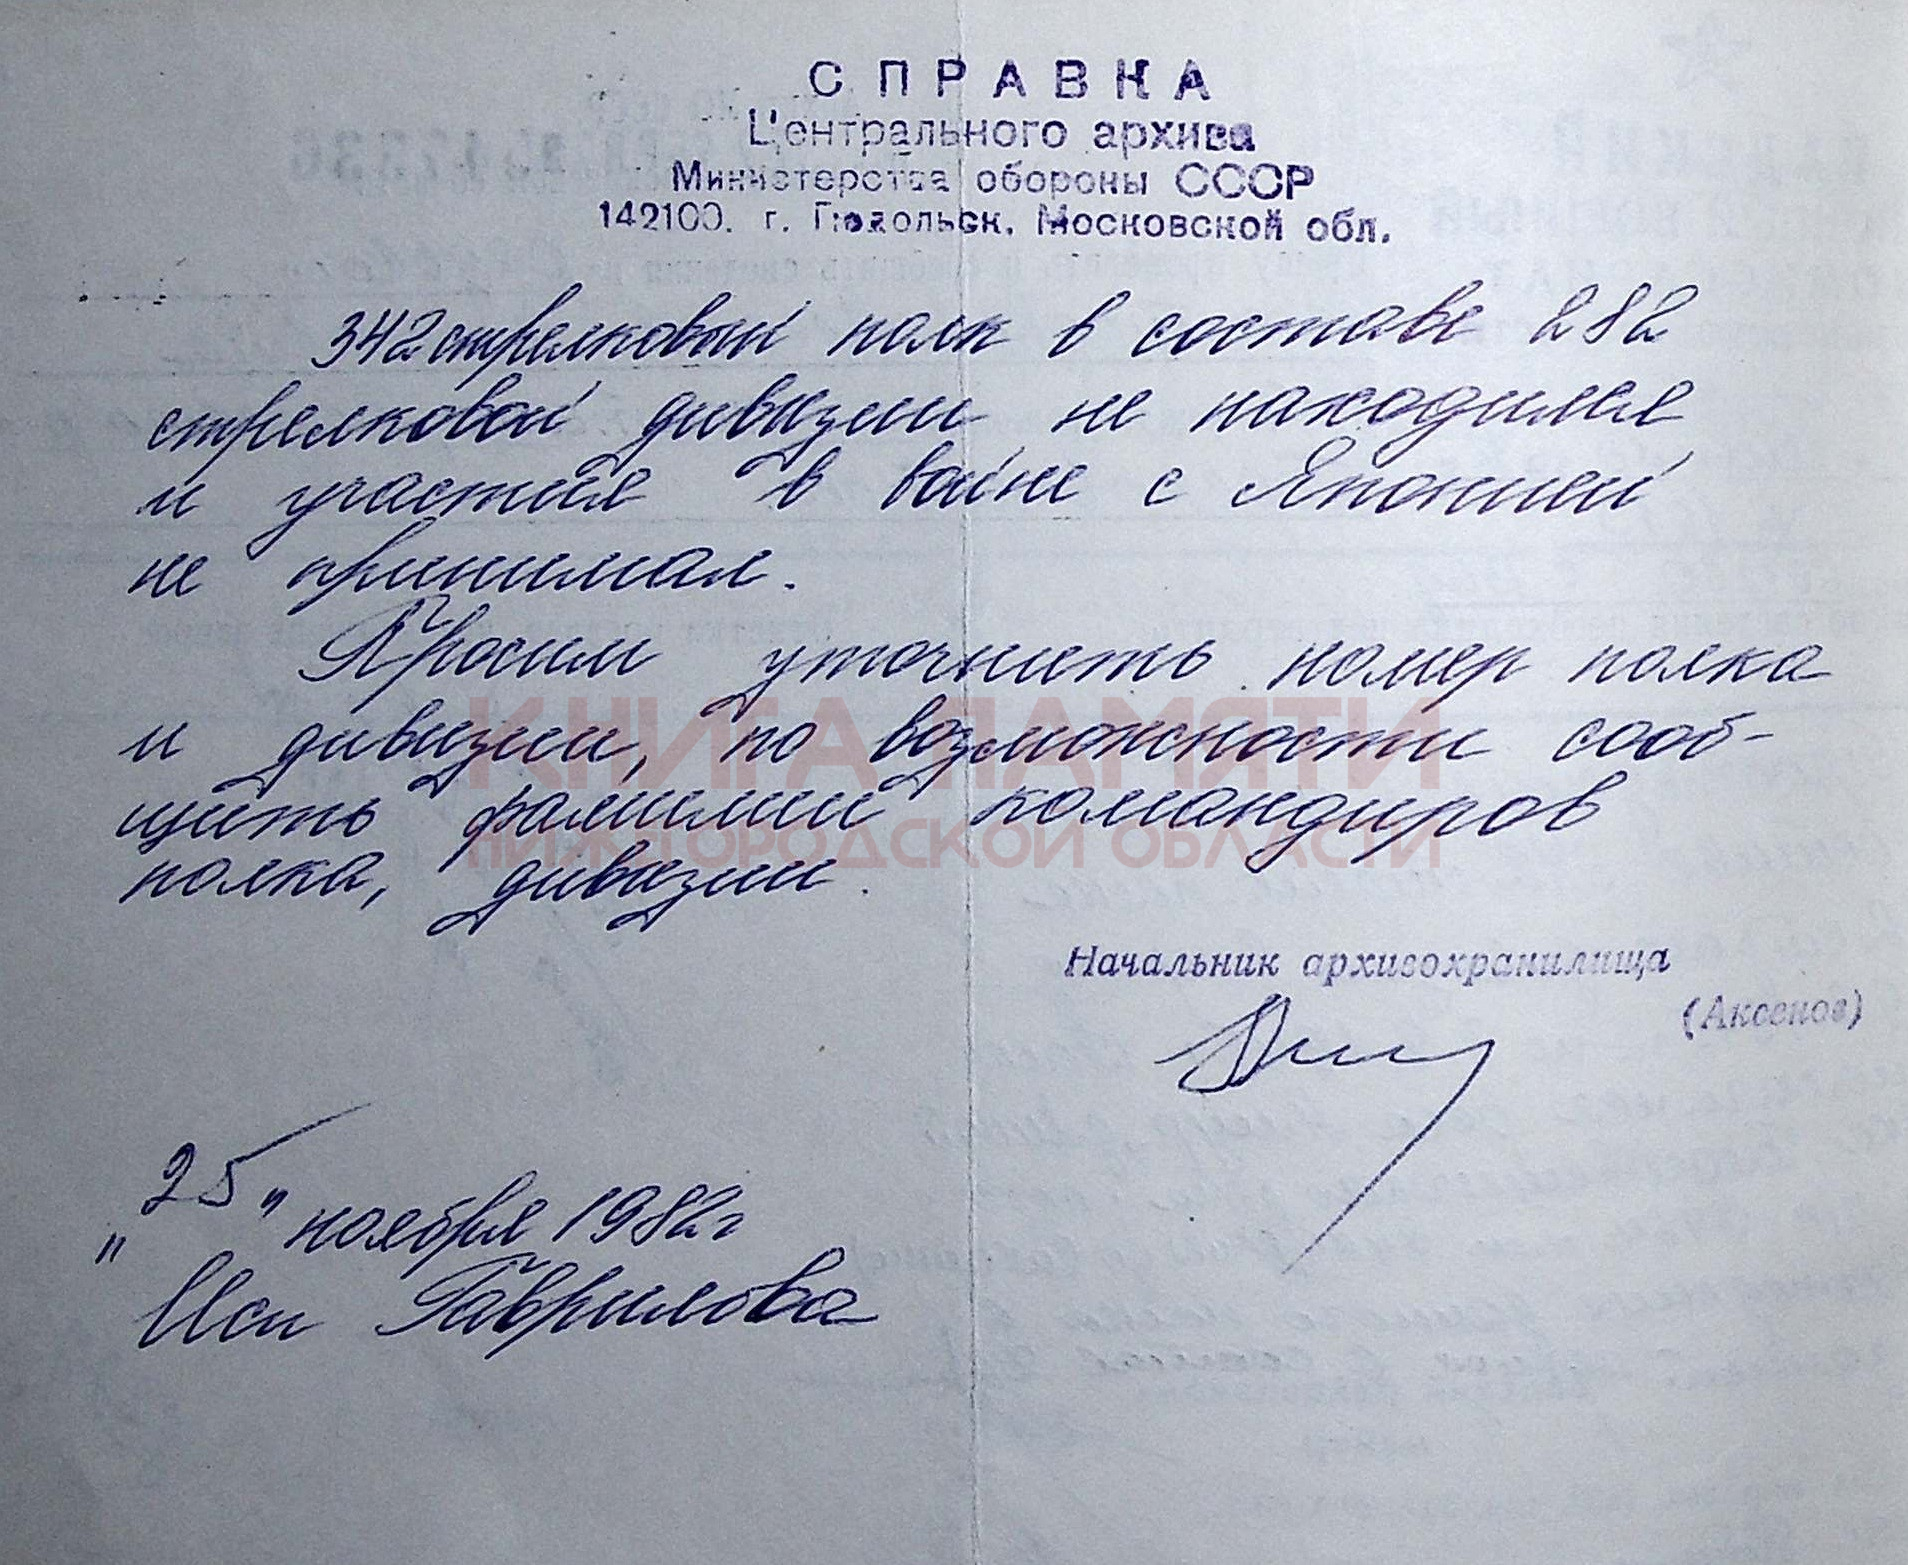 СПРАВКА
Центрального архива
Министерства обороны СССР
142100. г. Подольск. Московской обл.
342 стрелковый полк в составе 282
стрелковой дивизии не находился
и участия в войне с Японией
не принимал.
Просим уточнить номер полка
и дивизии, по возможности сооб-
щить фамилии командиров
полка, дивизии.
КНИГА ПАМЯТИ
НИЖЕГОРОДСКОЙ ОБЛАСТИ
Начальник архивохранилища
(Аксенов)
"25" ноября 1982г
Исп Гаврилова